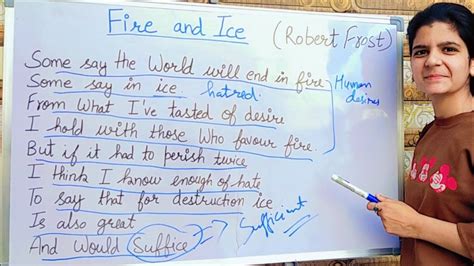 Fire and Ice (Robert Frost)
Some say the World will end in fire,
Some say in ice. hatred.
Human desires
From What I've tasted of desire
I hold with those Who favour fire.
But if it had to perish twice
I think I know enough of hate
To say that for destruction ice
Is also great
And Would Suffice
Sufficient